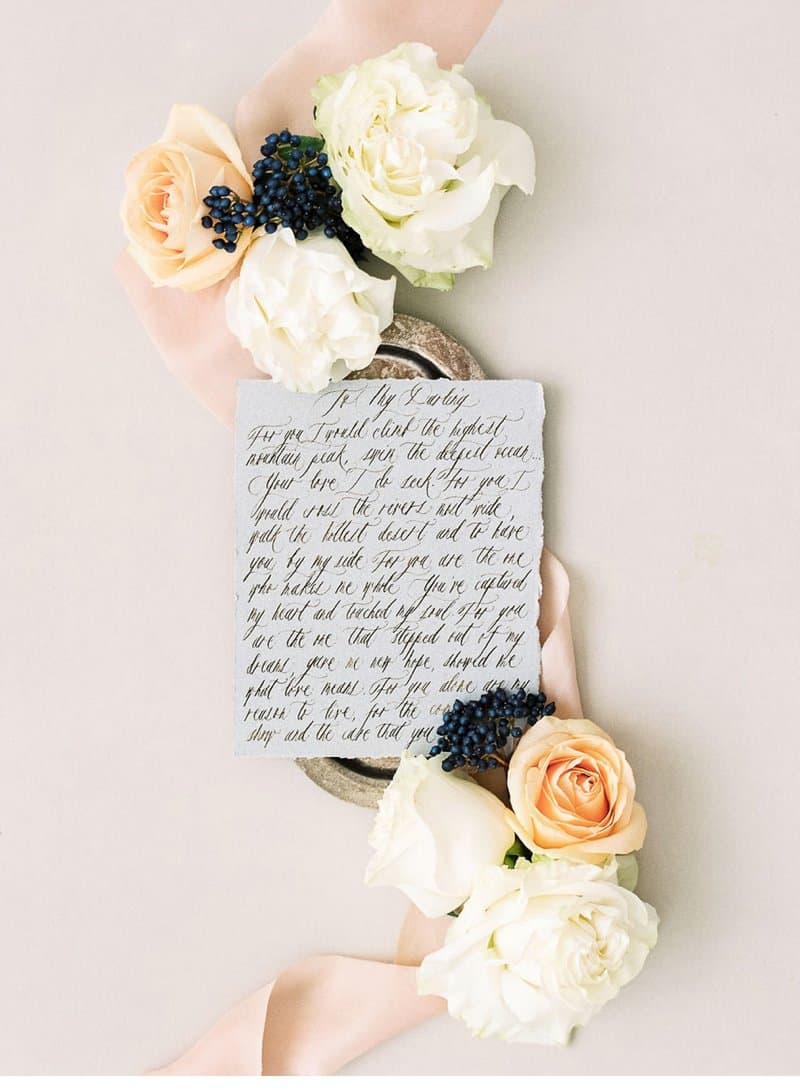 To My Darling
For you I would climb the highest
mountain peak, swim the deepest ocean...
Your love I do seek. For you I
would cross the rivers most wide,
walk the hottest desert and to have
you by my side For you are the one
who makes me whole You've captured
my heart and touched my soul For you
are the one that stepped out of my
dreams, gave me new hope, showed me
what love means. For you alone are my
reason to live, for the
show and the care that you